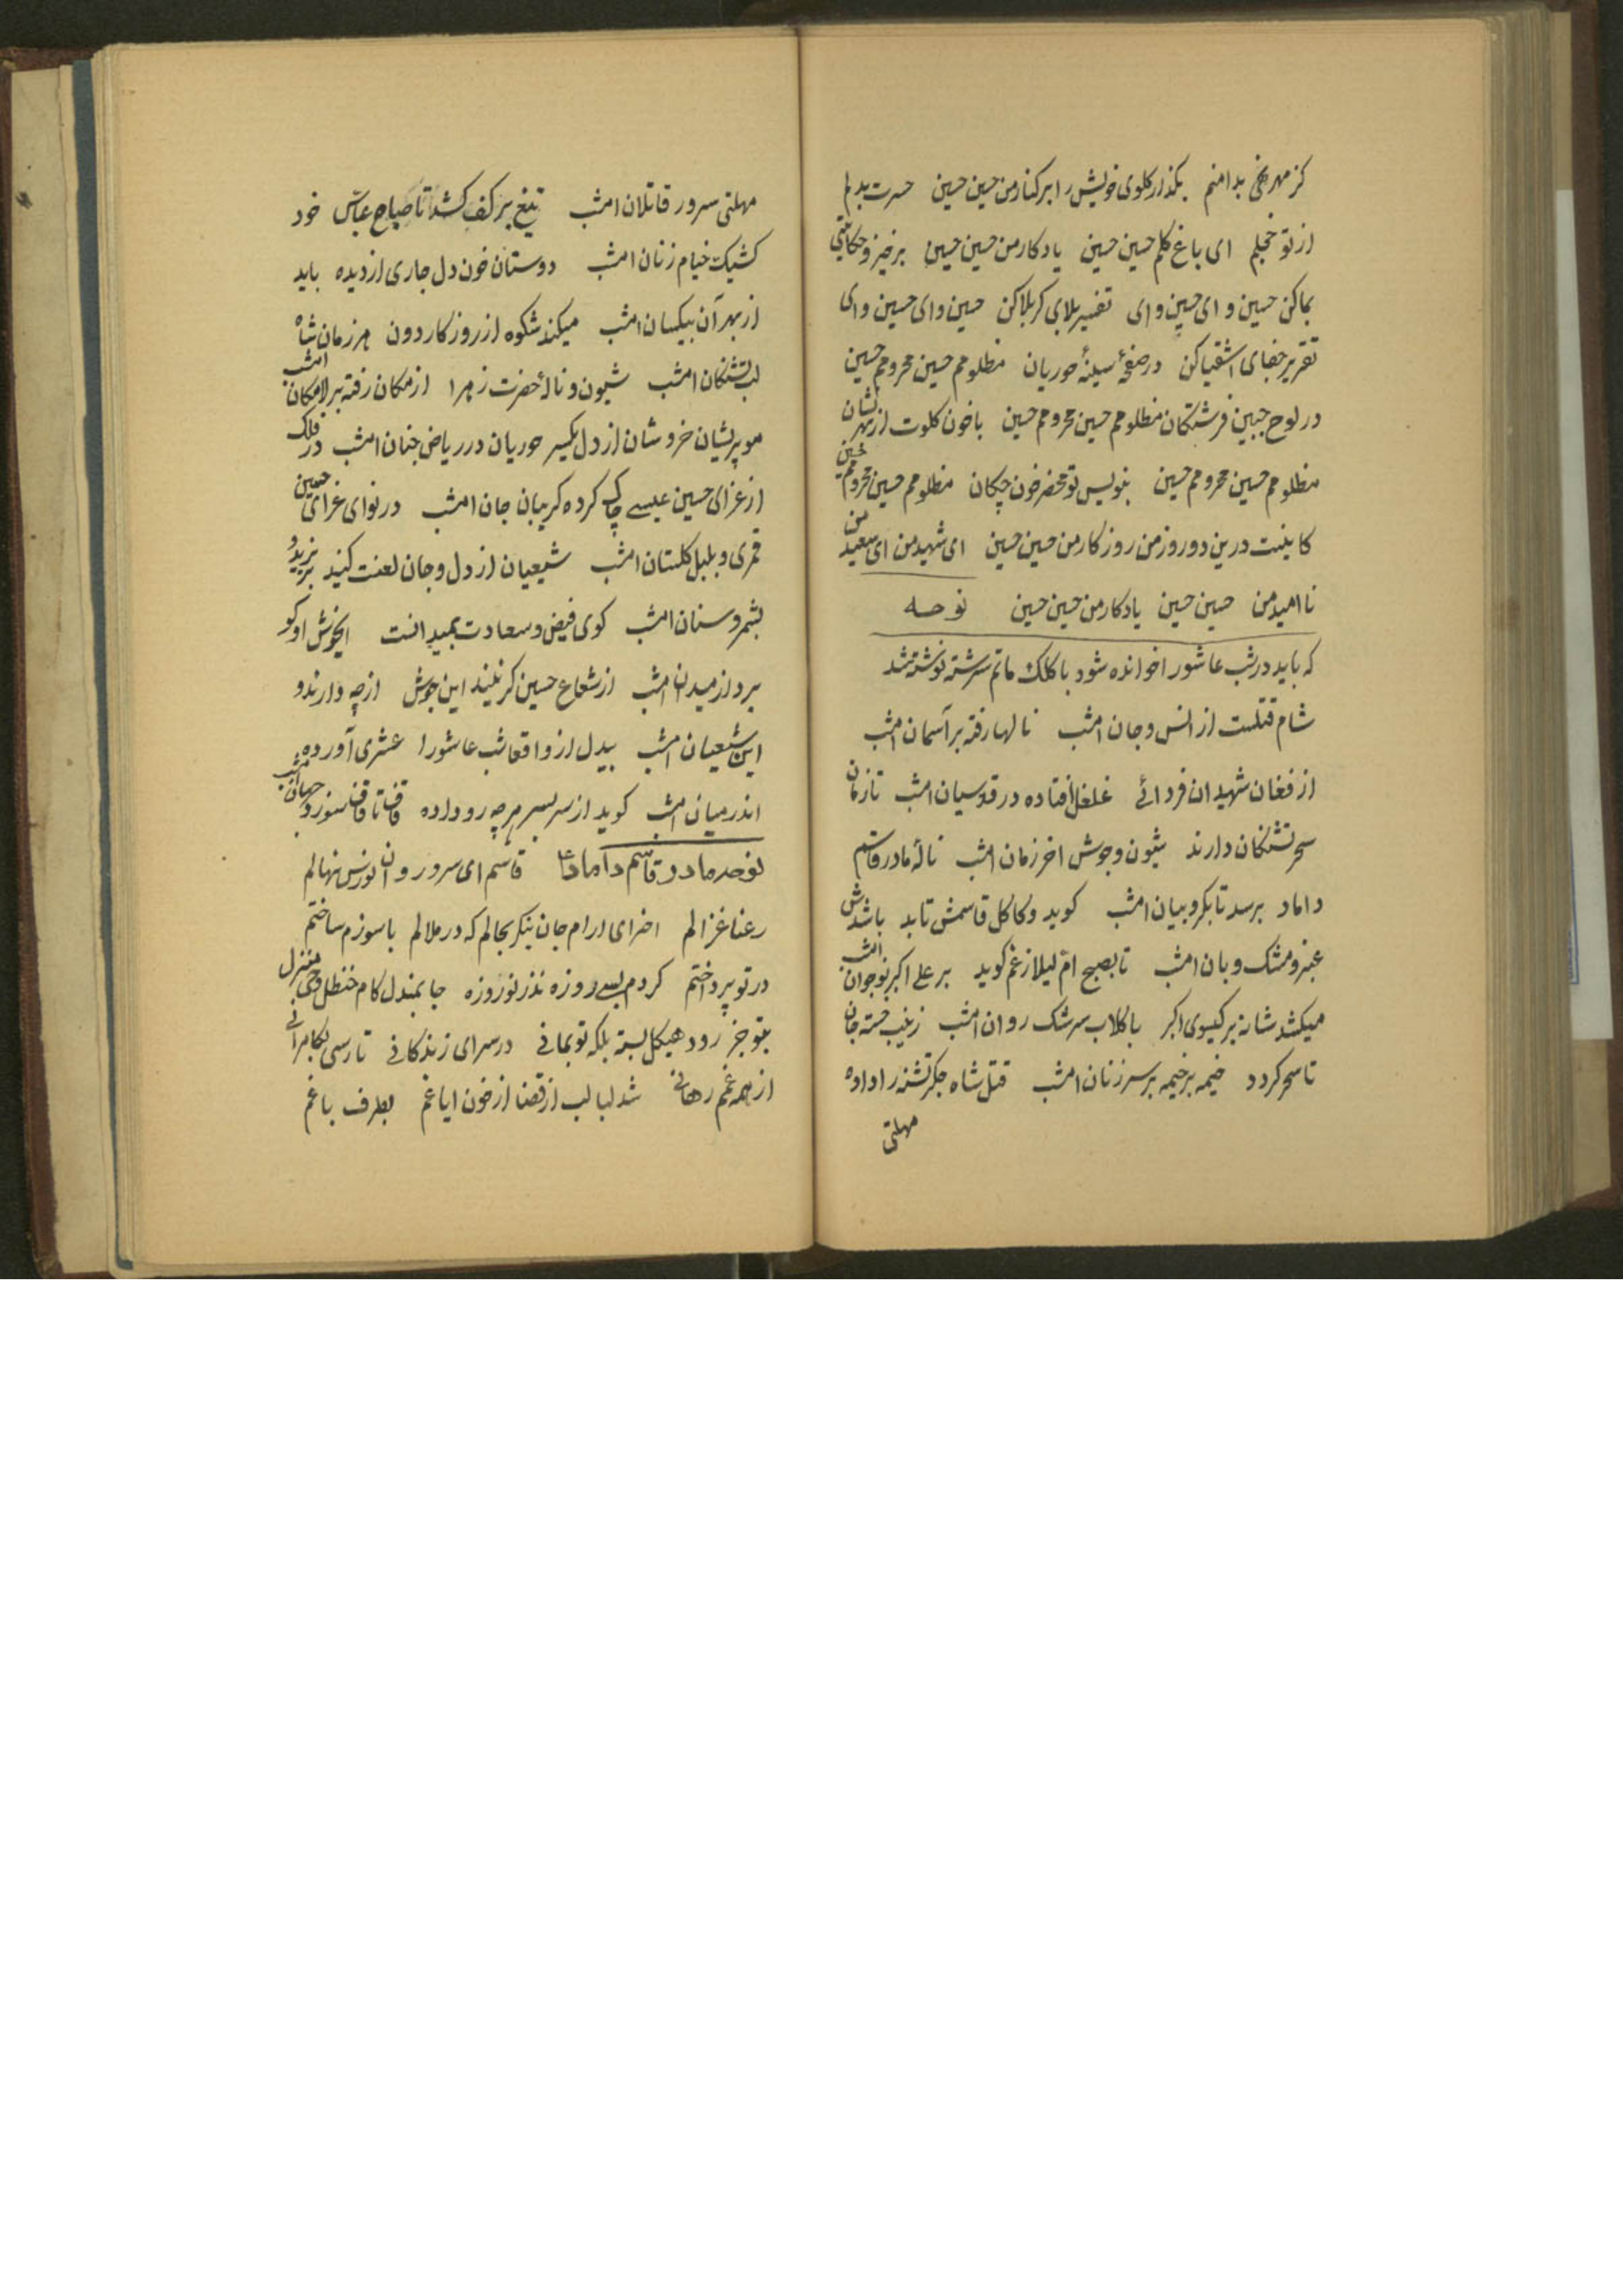 کز مهر بدامنم بگذار گلوی خویش را بر کنار من حسین حسین حسرت بدلم
از تو خجلم ای باغ گلم حسین حسین یادکار من حسین حسین برخیز و حکایتی
بما کن حسین وای حسین وای تفسیر بلای کربلا کن حسین وای حسین وای
تقریر جفای اشقیا کن در صفحهٔ سینهٔ حوریان مظلومم حسین محرومم حسین
در لوح جبین فرشتکان مظلومم حسین محرومم حسین با خون کلوت از بهر نشان
مظلومم حسین محرومم حسین بنویس تو محضر خون چکان مظلومم حسین محرومم حسین
کاینست درین دو روز من روزکار من حسین حسین ای شهید من ای سعید من
نا امید من حسین حسین یادکار من حسین حسین نوحه
که باید در شب عاشورا خوانده شود با کلک ماتم سرشته نوشته شد
شام قتلست از انس و جان امشب نالها رفته بر آسمان امشب
از فغان شهیدان فردائے غلغل افتاده در قدسیان امشب تا زمان
سحر تشنکان دارند شیون و جوش اخر زمان امشب نالهٔ مادر قاسم
داماد برسد تا بکروبیان امشب کوید و کاکل قاسمش تابد باشدش
عنبر و مشک و بان امشب تا بصبح ام لیلا ز غم کوید بر علی اکبر نوجوان امشب
میکشد شانه بر کیسوی اکبر با کلاب سرشک روان امشب زینب خسته جان
تا سحر کردد خیمه بر خیمه بر سر زنان امشب قتل شاه جکر تشنه را داده
مهلتی
مهلتی سرور قاتلان امشب تیغ بر کف کشد تا صباح عباس خود
کشیک خیام زنان امشب دوستان خون دل جاری از دیده باید
از بهر آن بیکسان امشب میکند شکوه از روزکار دون هر زمان شاه
لب تشنکان امشب شیون و نالهٔ حضرت زهرا از مکان رفته بر لامکان امشب
مو پریشان خروشان از دل یکسر حوریان در ریاض جنان امشب در فلک
از عزای حسین عیسے چاک کرده کریبان جان امشب در نوای عزای حسین
قمری و بلبل کلستان امشب شیعیان از دل و جان لعنت کنید بر یزید و
بشمر و سنان امشب کوی فیض و سعادت بمیدانست ایخوش او کو
برد از میدان امشب از شعاع حسین کر نیند این جوش از چه دارند و
این شیعیان امشب بیدل از واقعات شب عاشورا عشری آورده
اندر میان امشب کوید از سر بسر هر چه رو داده قاف تا قاف سوزد جهان امشب
نوحه مادر قاسم داماد ع قاسم ای سرو روان نورس نهالم
رعنا غزالم اخر ای ارام جان بنکر بحالم که در ملالم با سوزم ساختم
در تو پرداختم کردم بسے روزه نذر نوروزه جا بمندل کام حنظل وحی منزل
بتو جز رود هیکل بسته بلکه تو بمانی در سرای زندکانی تا رسی بکامرانے
از همه غم رهانے شد لبالب از قضا از خون ایاغم بطرف باغم